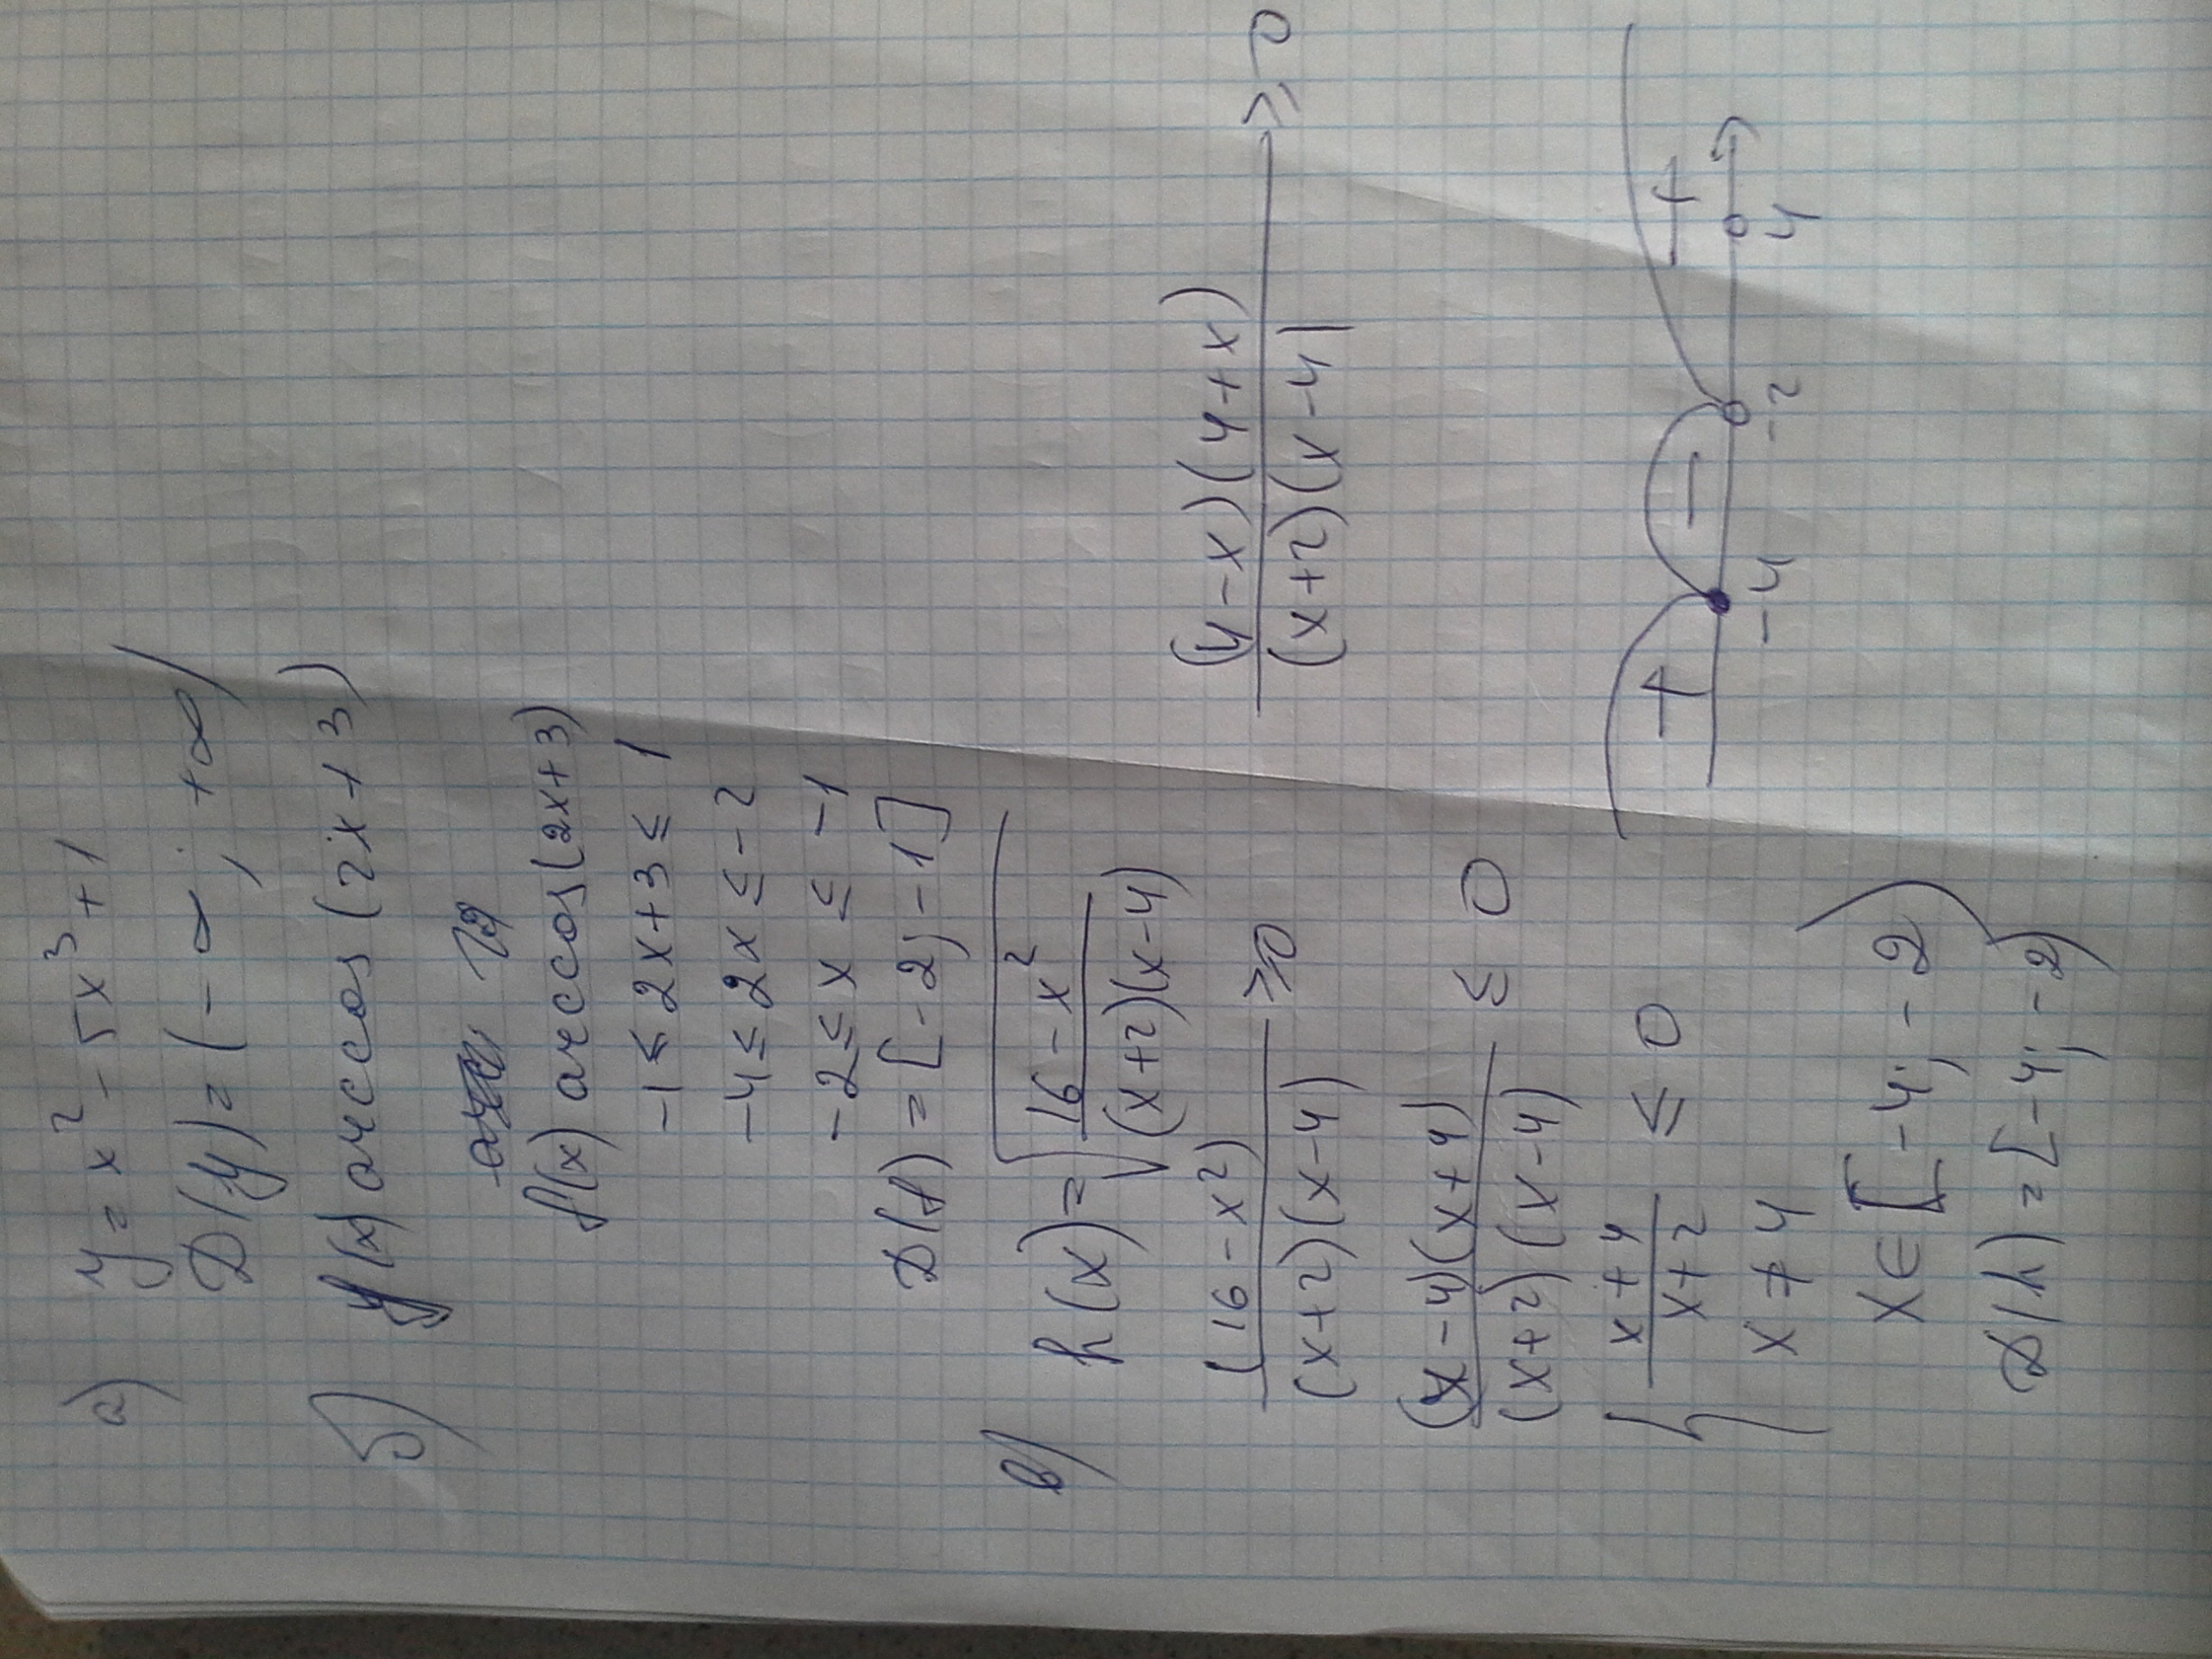 а) y = x² - 5x³ + 1
D(y) = (-∞; +∞)
б) f(x) arccos (2x+3)
f(x) arccos(2x+3)
-1 ≤ 2x+3 ≤ 1
-4 ≤ 2x ≤ -2
-2 ≤ x ≤ -1
D(f) = [-2; -1]
в) h(x) = √((16-x²)/((x+2)(x-4)))
(16-x²)/((x+2)(x-4)) ≥ 0
(4-x)(4+x)/((x+2)(x-4)) ≥ 0
(x-4)(x+4)/((x+2)(x-4)) ≤ 0
{ (x+4)/(x+2) ≤ 0
x ≠ 4
+ - +
-4 -2 4
x ∈ [-4; -2)
D(h) = [-4; -2)